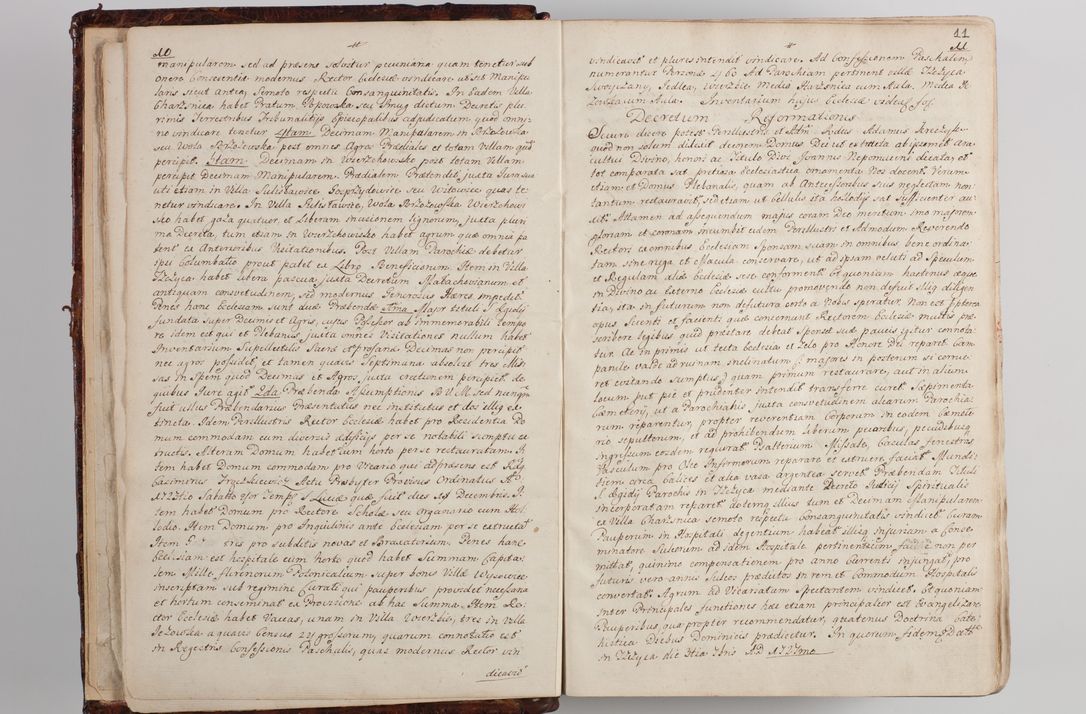 10
manipularem sed ad præsens solvitur pecuniaria quam tenetur sub
onere Conscientiæ modernus Rector Ecclesiæ vindicare ut sit Manipu
laris sicut antea, Semoto respectu Consanguinitatis. In eadem Villa
Charsznica habet Pratum Popowska seu Smug dictum Decretis plu
rimis Terrestribus Tribunalitijs Episcopalibus adjudicatum quod omni
no vindicare tenetur 4tam Decimam Manipularem in
seu Wola post omnes Agros Prædiales et totam Villam quam
percipit. Decimam in Wierzchowisko post totam Villam
percipit Decimam Manipularem. Prædialem Prætendet, juxta Jura sua
uti etiam in Villa Sulisławice Gosprzydowice seu Witowice quas te
netur vindicare. In Villa Sulisławice, Wola Wierzchowi
sko habet gaza quatuor, et Liberam Invisionem lignorum, juxta pluri
ma Decreta, tum etiam in Wierzchowisko habet agrum quæ omnia pa
tent ex Anterioribus Visitationibus. Post Villam Parochiæ debetur
ipsi Columbatio prout patet ex Libro Beneficiorum. Item in Villa
habet libera pascua, juxta Decretum Małachovianum et
antiquam consvetudinem, sed modernus Generosus Hæres impedit.
Penes hanc Ecclesiam sunt duæ Præbendæ 1ma Major tituli S. Ægidij
fundata super Decimis et Agris, cujus Possessor ab immemorabili tempo
re idem est qui et Plebanus juxta omnes Visitationes nullum habet
Inventarium Supellectilis Sacræ et profanæ Decimas non percipit
nec agros possidet, et tamen quavis Septimana absolvit tres Mis
sas in Spem quod Decimas et Agros juxta erectionem percipiet, de
quibus Jure agit 2da Præbenda Assumptionis B.V.M. sed nunqm
fuit ullus Præbendarius Præsentatus nec institutus et dos illius ex
tincta. Idem Perillustris Rector Ecclesiæ habet pro Residentia Do
mum commodam cum diversis ædificijs per se notabili sumptu ex
tructis. Alteram Domum habet cum horto per se restauratam. I
tem habet Domum commodam pro Vicario qui ad præsens est Rdg
Casimirus Actu Præsbyter Provisus Ordinatus AD
1725to Sabatho 4or Temp: S. Luciæ quæ fuit dies 22 Decembris. I
tem habet Domum pro Rectore Scholæ seu Organario cum Hol
lodio. Item Domum pro Inquilinis ante Ecclesiam per se extructã
Item tris pro subditis novas et Braxatorium. Penes hanc
Ecclesiam est hospitale cum horto quod habet Summam Capita
lem Mille florenorum Polonicalium super bonis Villæ
inscriptam sub regimine Curati qui pauperibus providet necessaria
et hortum conseminat ex Provisione ab hac Summa. Item Re
ctor Ecclesiæ habet Vaccas, unam in Villa Wierzbie, tres in Villa
Jelzowka a quavis Census 24 grossorum, quarum connotatio est
in Regestris Confessionis Paschalis, quas modernus Rector vin
dicavit
11
vindicavit et plures intendit vindicare. Ad Confessionem Paschalem
numerantur Personæ 460. Ad Parochiam pertinent villæ
Swojczany, Sedlea, Wierzbie MediaHarsznica cum Aula, Media
cum Aula. Inventarium hujus Ecclesiæ videatur fol.
Decretum Reformationis
Secure dicere potest Perillustris et Adm Rndus Adamus
quod non solum dilexit decorem Domus Dei ut ex tecta ab ipsomet ara
cultui Divino, honori ac titulo Divi Joannis Nepomuceni dicata, et
tot comparata sat pretiosa Ecclesiastica ornamenta Nos docent. Verum
etiam et Domus Plebanalis, quam ab Antecessoribus suis neglectam non
tantum restauravit, sed etiam ut bellulis ita hospitijs sat sufficienter au
xit. Attamen ad assequendum majus coram Deo meritum imo majorem
gloriam et coronam incumbit eidem Perillustri et Admodum Reverendo
Rectori ex omnibus Ecclesiam Sponsam suam in omnibus bene ordina
tam sine ruga et Macula conservare, ut ad ipsam veluti ad Speculum
et Regulam aliæ Ecclesiæ sese conforment. Et quoniam hactenus æque
in Divino ac externo Ecclesiæ cultu promovendo non defuit illius diligen
tia, ita in futurum non defutura certo a Nobis speratur. Non est propterea
opus, Scienti et facienti quæ concernunt Rectorem Ecclesiæ multis præ
scribere legibus quid præstare debeat Sponsæ suæ paucis igitur connota
tur. Ac in primis ut tecta Ecclesiæ et Zelo pro Honore Dei reparet Cam
panile valde ad ruinam inclinatum (: majores in posterum si corrue
ret evitando sumptus:) quam primum restaurare, aut in alium
locum put pie et prudenter intendit transferre curet. Sæpimenta
Cæmeterij, ut a Parochialis juxta consvetudinem aliarum Parochia
rum reparentur, propter reverentiam Corporum in eodem Cæmete
rio sepultorum, et ad prohibendum liberum pecoribus, pecudibusq
ingressum eorum regurat. Psalterium Missale, Casulas, fenestras
Vasculum pro Oleo Infirmorum reparare et extruere faciat. Mundi
tiem circa Calices et alia vasa argentea servet. Præbendam tituli
S. Ægidij Parochis in mediante Decreto Judicij Spiritualis
incorporatam reparet, dotemq illius tum et Decimam Manipularem
ex Villa Charsznica semoto respectu Consanguinitatis vindicet. Curam
Pauperum in Hospitali degentium habeat, illiusq injuriam a Conse
minatore Sulcorum ad idem Hospitale pertinentium fa non per
mittat, quinimo compensationem pro anno currenti injungat, pro
futuris vero annis Sulcos prædictos in rem et commodum Hospitalis
convertat. Agrum ad Vicariatum Spectantem vindicet. Et quoniam
inter Principales functiones hæc etiam principalior est Evangelizare
Pauperibus, qua propter recommendatur, quatenus Doctrina Cate
chistica Diebus Dominicis prædicetur. In quorum fidem Datt
in die 7bris AD 1727mo